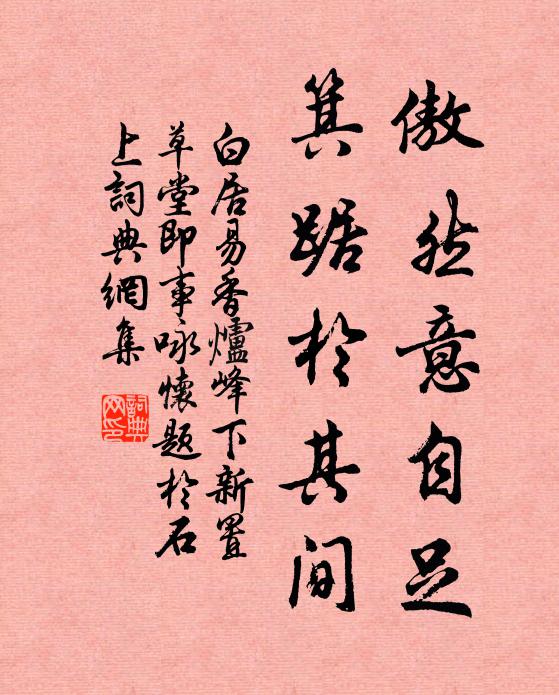 傲然意自足
箕踞於其間
白居易香爐峰下新置
草堂即事咏懷題於石
上詞典網集
詞典
网印